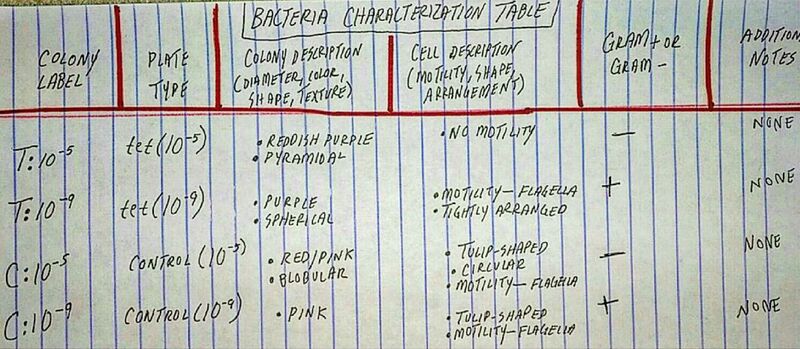 BACTERIA CHARACTERIZATION TABLE
COLONY LABEL
PLATE TYPE
COLONY DESCRIPTION
(DIAMETER, COLOR,
SHAPE, TEXTURE)
CELL DESCRIPTION
(MOTILITY, SHAPE,
ARRANGEMENT)
GRAM + OR
GRAM -
ADDITION
NOTES
T:10⁻⁵ tet(10⁻⁵) • REDDISH PURPLE • NO MOTILITY — NONE
• PYRAMIDAL
T:10⁻⁹ tet(10⁻⁹) • PURPLE • MOTILITY—FLAGELLA + NONE
• SPHERICAL • TIGHTLY ARRANGED
C:10⁻⁵ CONTROL(10⁻⁵) • RED/PINK • TULIP-SHAPED — NONE
• BLOBULAR • CIRCULAR
• MOTILITY—FLAGELLA
C:10⁻⁹ CONTROL(10⁻⁹) • PINK • TULIP-SHAPED + NONE
• MOTILITY—FLAGELLA